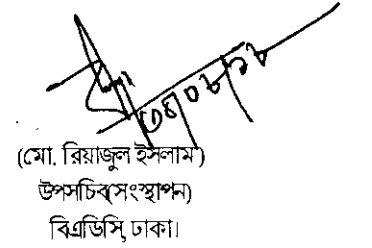 (মো. রিয়াজুল ইসলাম)
উপসচিব(সংস্থাপন)
বিএডিসি, ঢাকা।